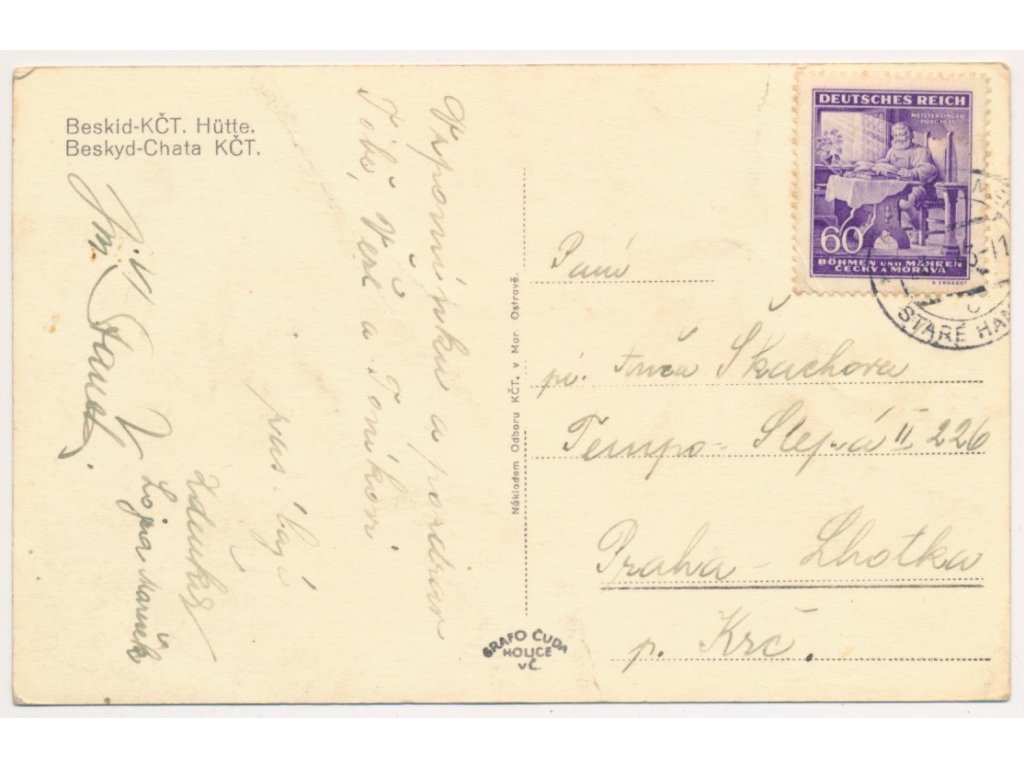 Beskid-KČT. Hütte.
Beskyd-Chata KČT.
Vzpomínku a pozdrav
Tobě, Věře a Toníkovi
Zdeněk
Lojza Mareček
Nákladem Odboru KČT. v Mor Ostravě.
GRAFO ČUDA
HOLICE
VČ.
DEUTSCHES REICH
MEISTERSINGER
60
BÖHMEN UND MÄHREN
ČECHY A MORAVA
STARÉ HAM
Paní
Škachova
Tempo - Slepá II 226
Praha - Lhotka
p. Krč.